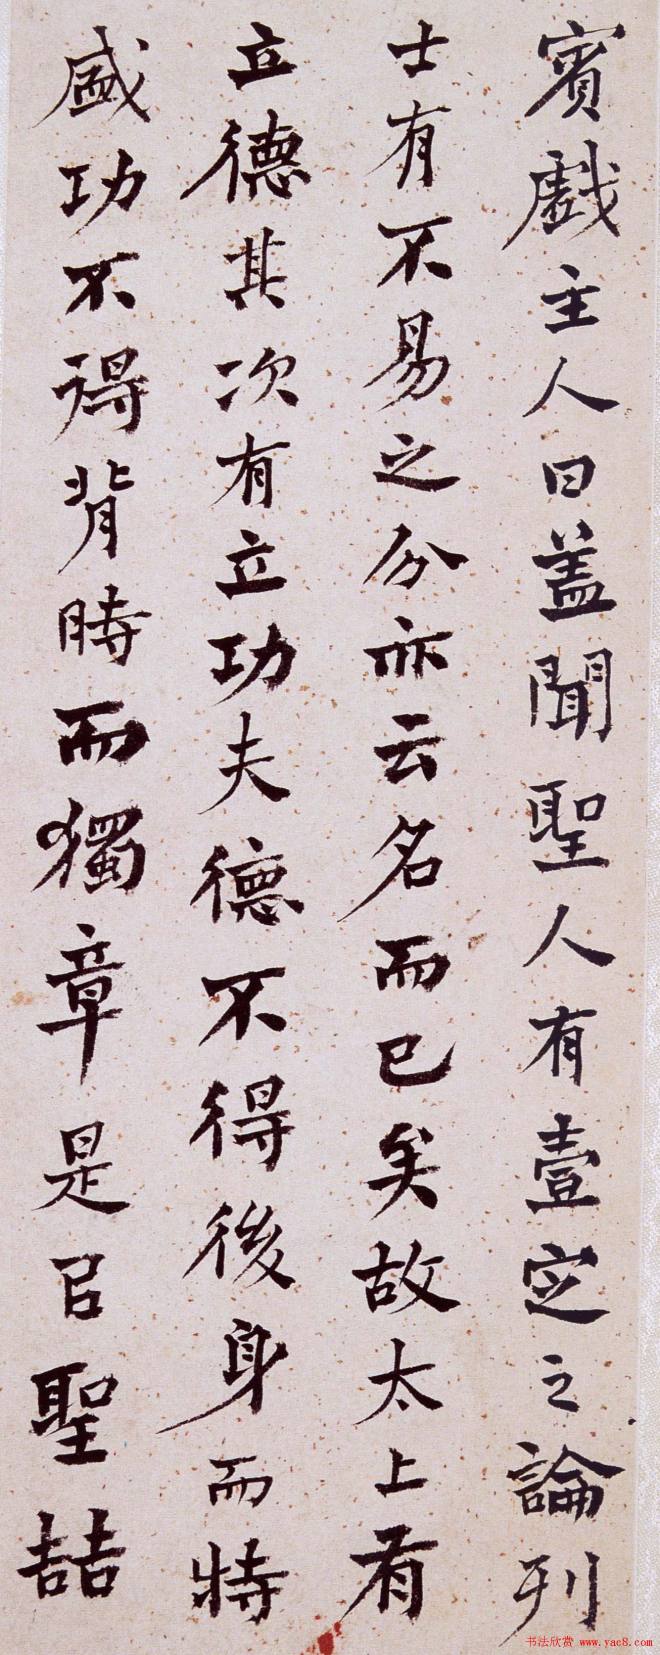 賓戲主人曰盖聞聖人有壹定之論刊
士有不易之分亦云名而已矣故太上有
立德其次有立功夫德不得後身而特
盛功不得背時而獨章是㠯聖喆
书法欣赏 www.yac8.com